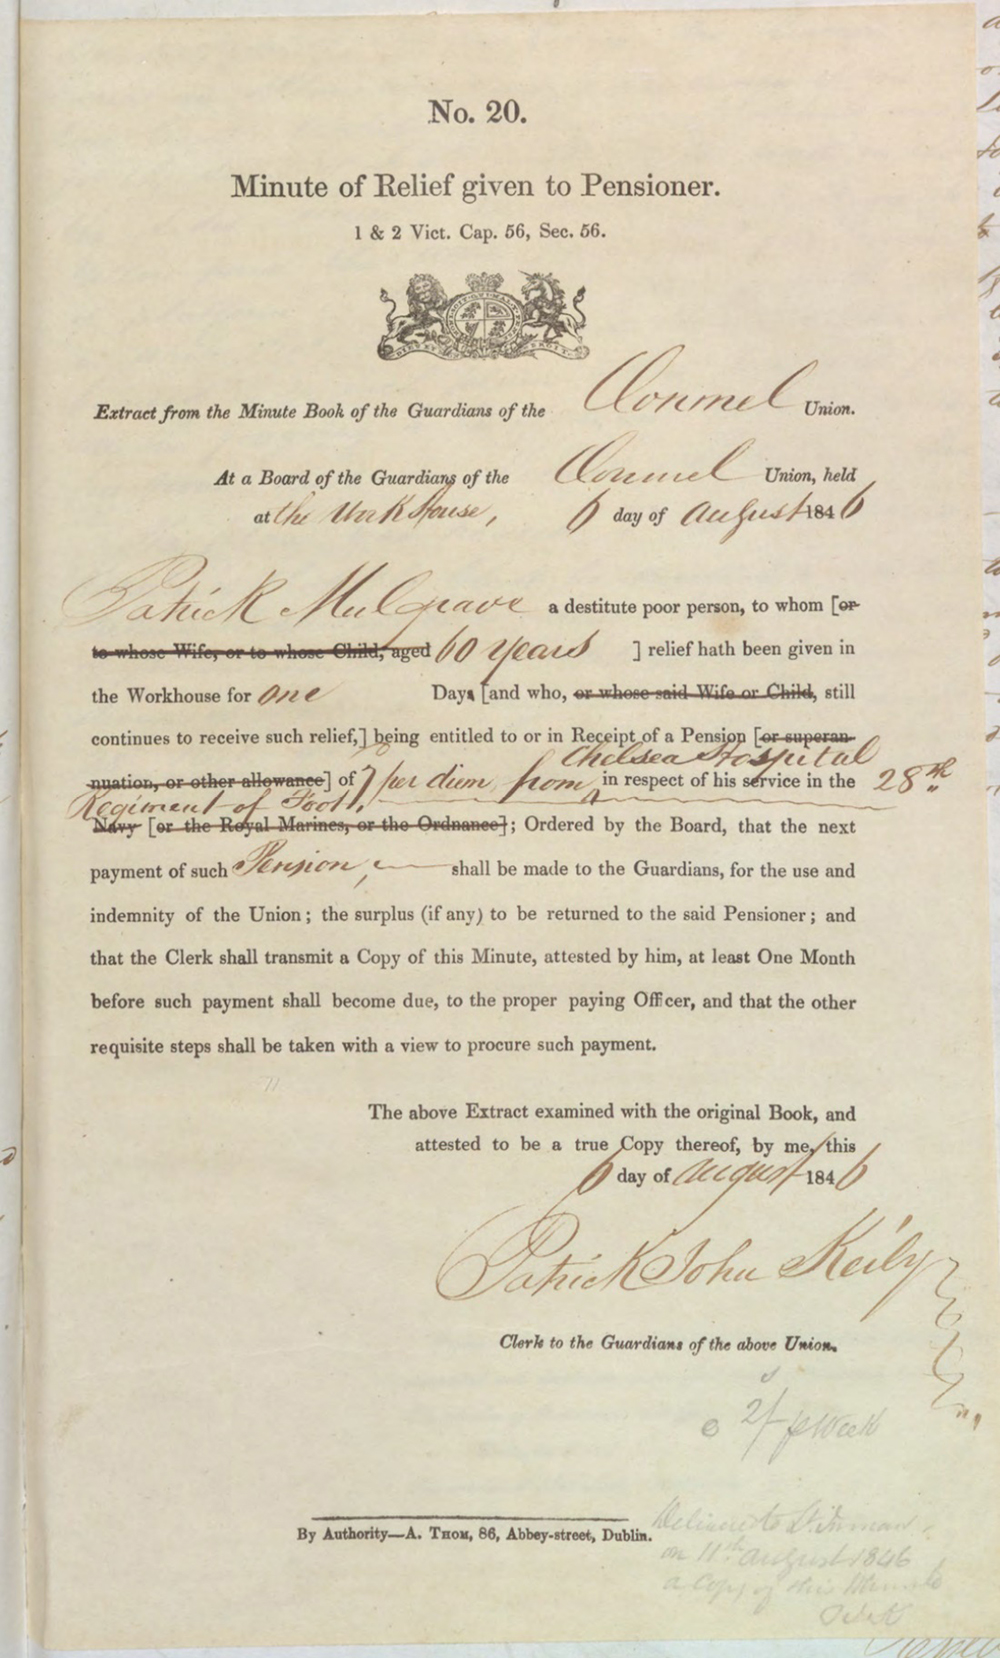 No. 20.
Minute of Relief given to Pensioner.
1 & 2 Vict. Cap. 56, Sec. 56.
Extract from the Minute Book of the Guardians of the Clonmel Union.
At a Board of the Guardians of the Clonmel Union, held
at the Work House, 6 day of August 1846
Patrick Mulgrave a destitute poor person, to whom [or
to whose Wife, or to whose Child, aged 60 years ] relief hath been given in
the Workhouse for one Days [and who, or whose said Wife or Child, still
continues to receive such relief,] being entitled to or in Receipt of a Pension [or superan-
Chelsea Hospital
nuation, or other allowance] of 7 per diem from in respect of his service in the 28th
Regiment of Foot,
Navy [or the Royal Marines, or the Ordnance]; Ordered by the Board, that the next
payment of such Pension, shall be made to the Guardians, for the use and
indemnity of the Union; the surplus (if any) to be returned to the said Pensioner; and
that the Clerk shall transmit a Copy of this Minute, attested by him, at least One Month
before such payment shall become due, to the proper paying Officer, and that the other
requisite steps shall be taken with a view to procure such payment.
The above Extract examined with the original Book, and
attested to be a true Copy thereof, by me, this
6 day of August 1846
Patrick John Keily
Clerk to the Guardians of the above Union.
2/ p Week
By Authority—A. Thom, 86, Abbey-street, Dublin.
on 11th August 1846
a Copy of this Minute